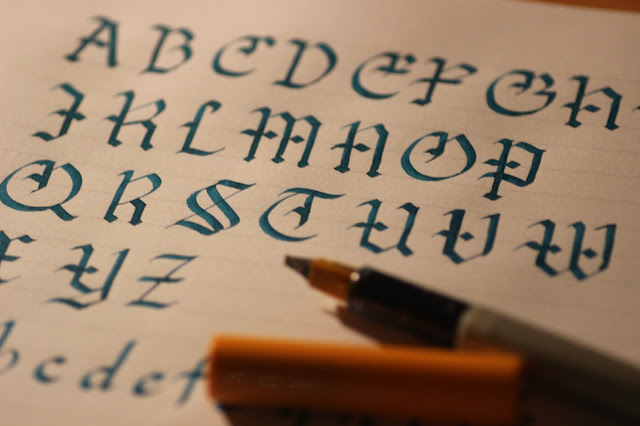 A B C D E F G h
J K L M N O P
Q R S T U V W
X Y Z
b c d e f